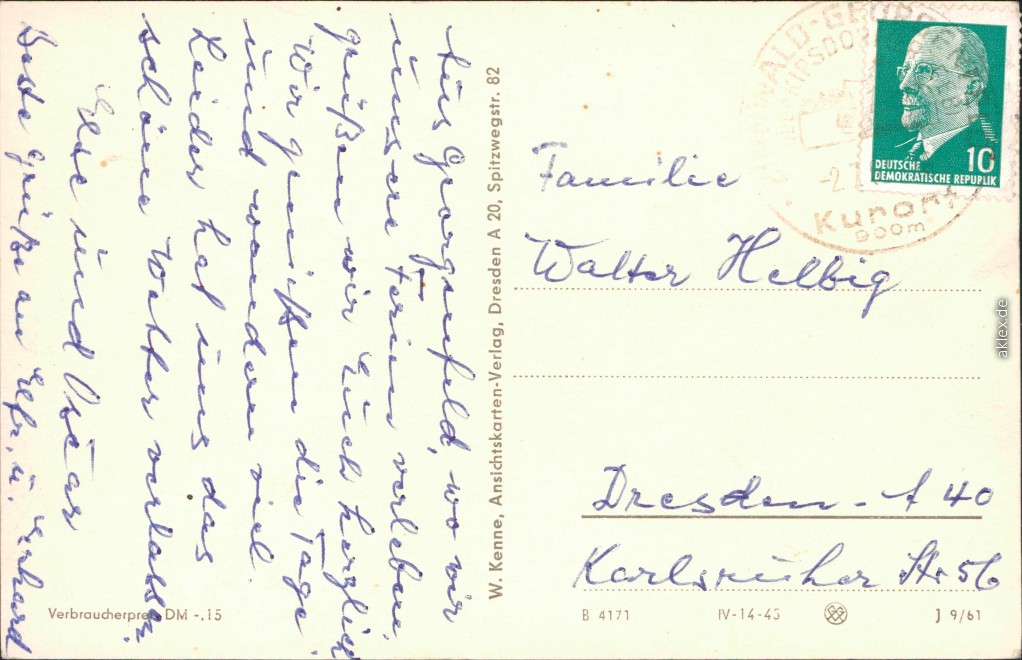 Aus Georgenfeld, wo wir
unsere Ferien verleben,
grüßen wir Euch herzlich
Wir genießen die Tage
und wandern viel.
Leider hat uns das
schöne Wetter verlassen.
Else und Oskar
Beste Grüße an Elfr. u. Erhard
W. Kenne, Ansichtskarten-Verlag, Dresden A 20, Spitzwegstr. 82
Verbraucherpreis DM -,15
WALD-GEORG
Kurort
900m
DEUTSCHE
DEMOKRATISCHE REPUBLIK
10
Familie
Walter Helbig
Dresden - A 40
Karlsruher Str 56
B 4171 IV-14-45 J 9/61
aklex.de